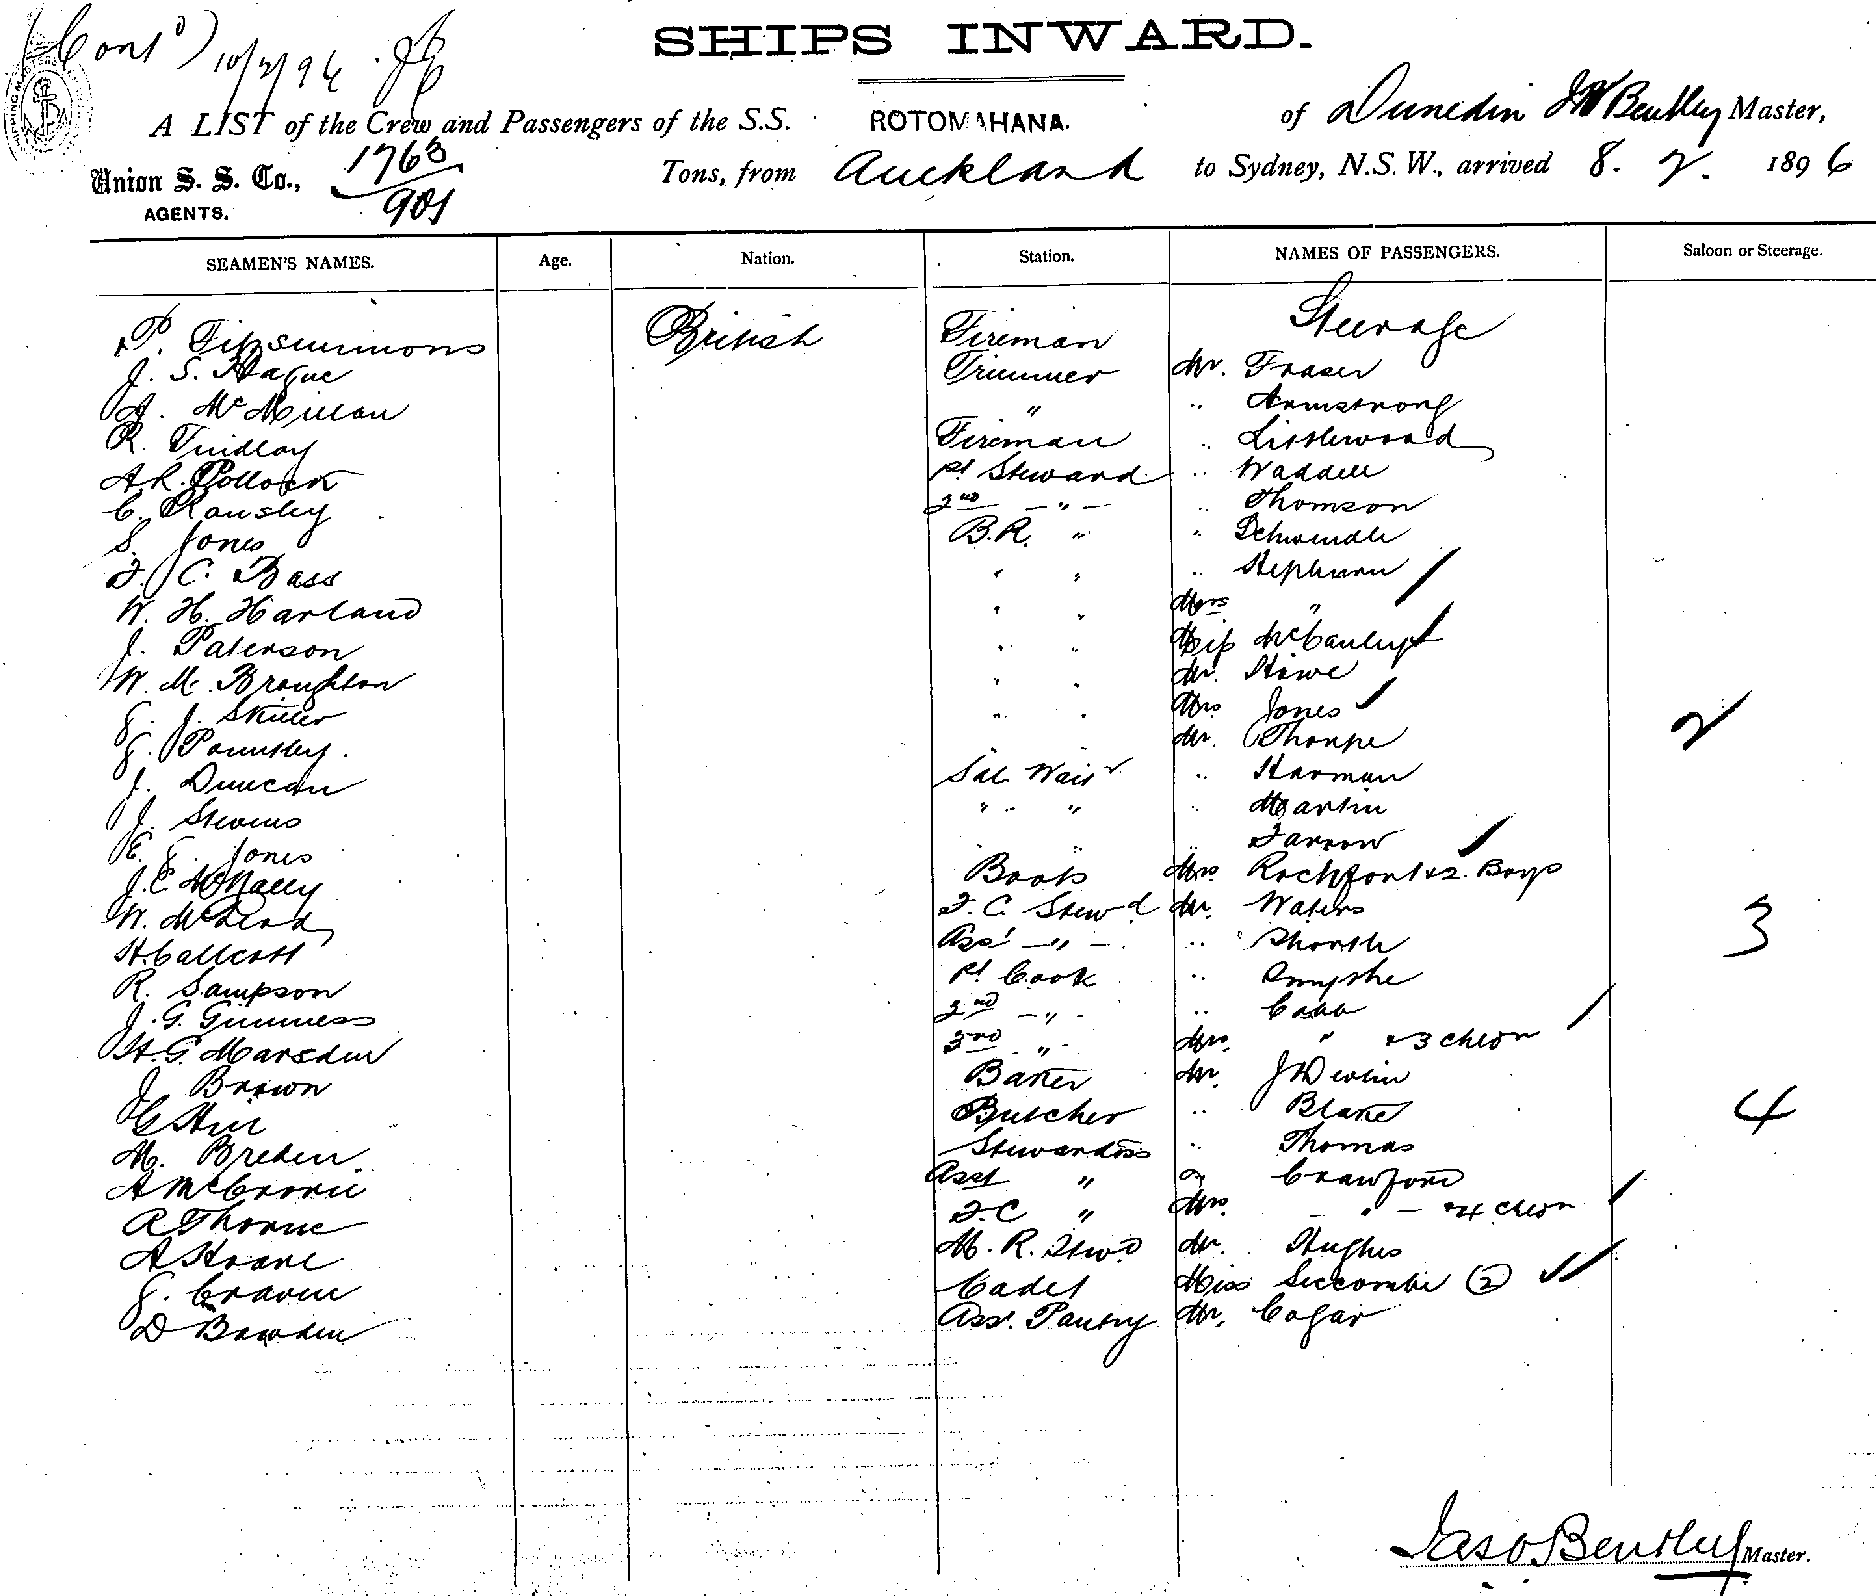 (Cont'd) 10/2/96
SHIPS INWARD.
A LIST of the Crew and Passengers of the S.S. ROTOMAHANA. of Dunedin Bentley Master,
Union S. S. Co., 1763 Tons, from Auckland to Sydney, N.S.W., arrived 8. 2. 1896
AGENTS. 901
SEAMEN'S NAMES. Age. Nation. Station. NAMES OF PASSENGERS. Saloon or Steerage.
Steerage
P. Fitzsimmons British Fireman
J. S. Hague Trimmer Mr. Fraser
A. McMillan " " Armstrong
R. Findlay Fireman " Littlewood
A R. Pollock 1st Steward " Waddell
C. Ransley 2nd " " Thomson
S. Jones B.R. " "
F. C. Bass " " " Hepburn
W. H. Harland " " Mrs "
J. Paterson " " Miss McCauley
W. M. Broughton " " Mr. Howe
J. " " Mrs Jones
Mr. Thorpe 2
J. Duncan Sal. Waitr " Harman
J. Stevens " " " Martin
E. Jones " " Farrow
J. C. McNally Boots Mrs Rochfort & 2 Boys
W. McLeod F. C. Stewd Mr. Waters 3
H. Callcott Asst " "
R. Sampson 1st Cook " Smythe
J. G. Guinness 2nd " " Cabb
H. G. Marsden 3rd " Mrs. " & 3 Chldn
J. Brown Baker Mr. J Devlin
G Hill Butcher " Blake 4
M. Breden Stewardess " Thomas
A McCrorie Asst " " Crawford
R Thorne F.C " Mrs. " & 4 Chldn
A Hoare M. R. Stwd Mr. Hughes
J. Craven Cadet Miss Seccombe (2)
D Bowden Asst. Pantry Mr. Cogar
Jas. Bentley Master.